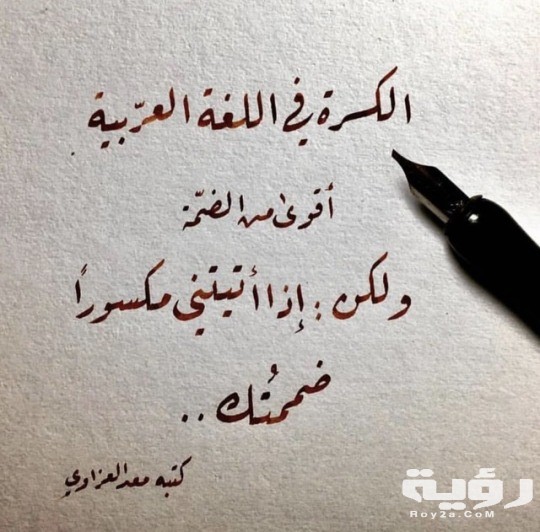 الكسرة في اللغة العربّية
أقوىٰ من الضمّة
ولكن : إذا أتيتني مكسوراً
ضممتُك ..
كتبه معد العزاوي
رؤية
Roy2a.CoM